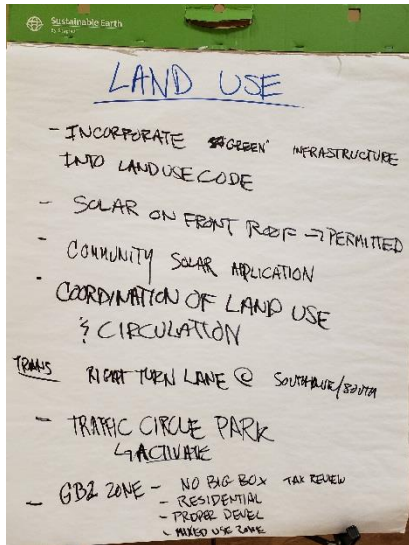 Sustainable Earth
LAND USE
- INCORPORATE "GREEN" INFRASTRUCTURE
INTO LAND USE CODE
- SOLAR ON FRONT ROOF → PERMITTED
- COMMUNITY SOLAR APPLICATION
- COORDINATION OF LAND USE
& CIRCULATION
TRANS RIGHT TURN LANE @
- TRAFFIC CIRCLE PARK
↳ ACTIVATE
- GB2 ZONE - NO BIG BOX TAX REVIEW
- RESIDENTIAL
- PROPER DEVEL
- MIXED USE ZONE